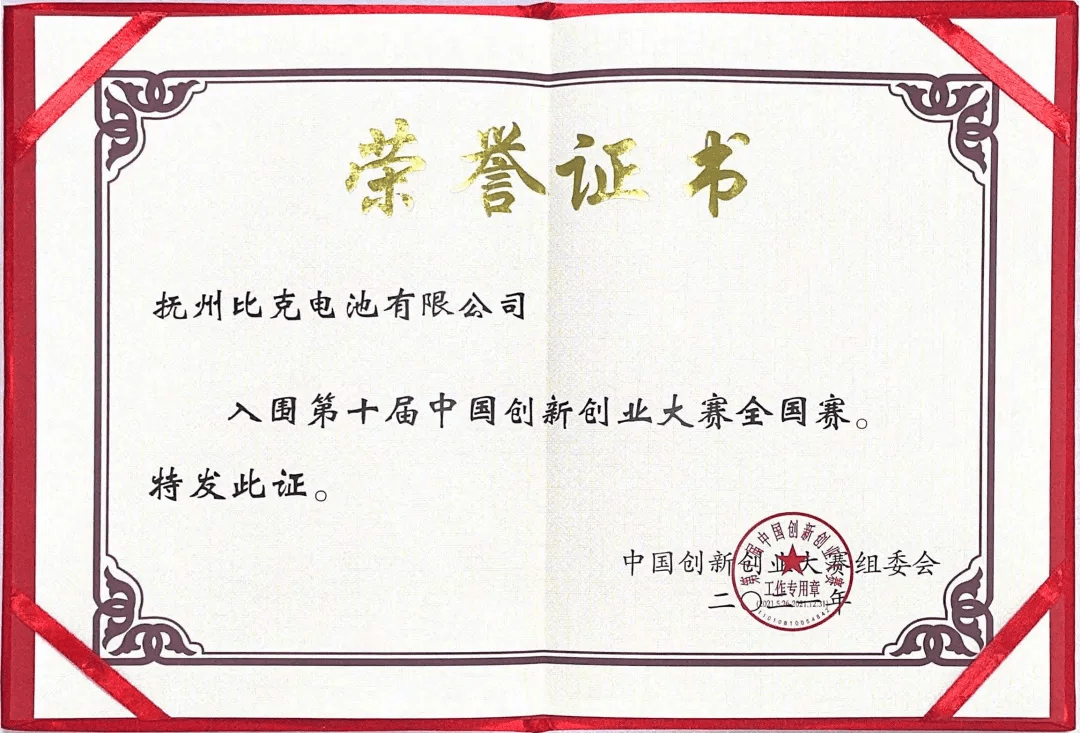 荣誉证书
抚州比克电池有限公司
入围第十届中国创新创业大赛全国赛。
特发此证。
中国创新创业大赛组委会
二〇二一年
第十届中国创新创业大赛
工作专用章